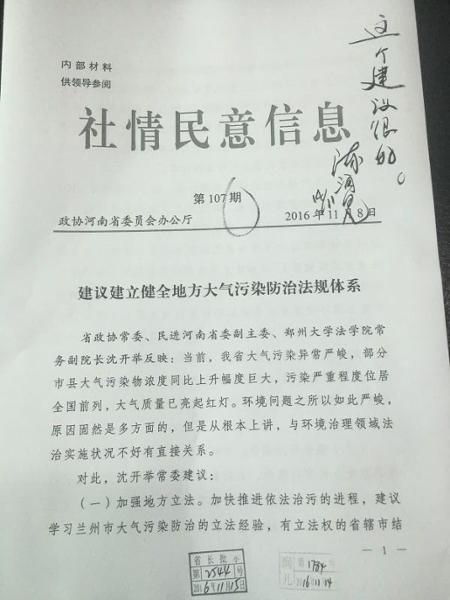 内部材料
供领导参阅
这个建议很好。
社情民意信息
第107期
政协河南省委员会办公厅 2016年11月8日
建议建立健全地方大气污染防治法规体系
省政协常委、民进河南省委副主委、郑州大学法学院常
务副院长沈开举反映：当前，我省大气污染异常严峻，部分
市县大气污染物浓度同比上升幅度巨大，污染严重程度位居
全国前列，大气质量已亮起红灯。环境问题之所以如此严峻，
原因固然是多方面的，但是从根本上讲，与环境治理领域法
治实施状况不好有直接关系。
对此，沈开举常委建议：
（一）加强地方立法。加快推进依法治污的进程，建议
学习兰州市大气污染防治的立法经验，有立法权的省辖市结
— 1 —
省长批示
第2544号
2016年11月15日
第1784号
2016.11.14